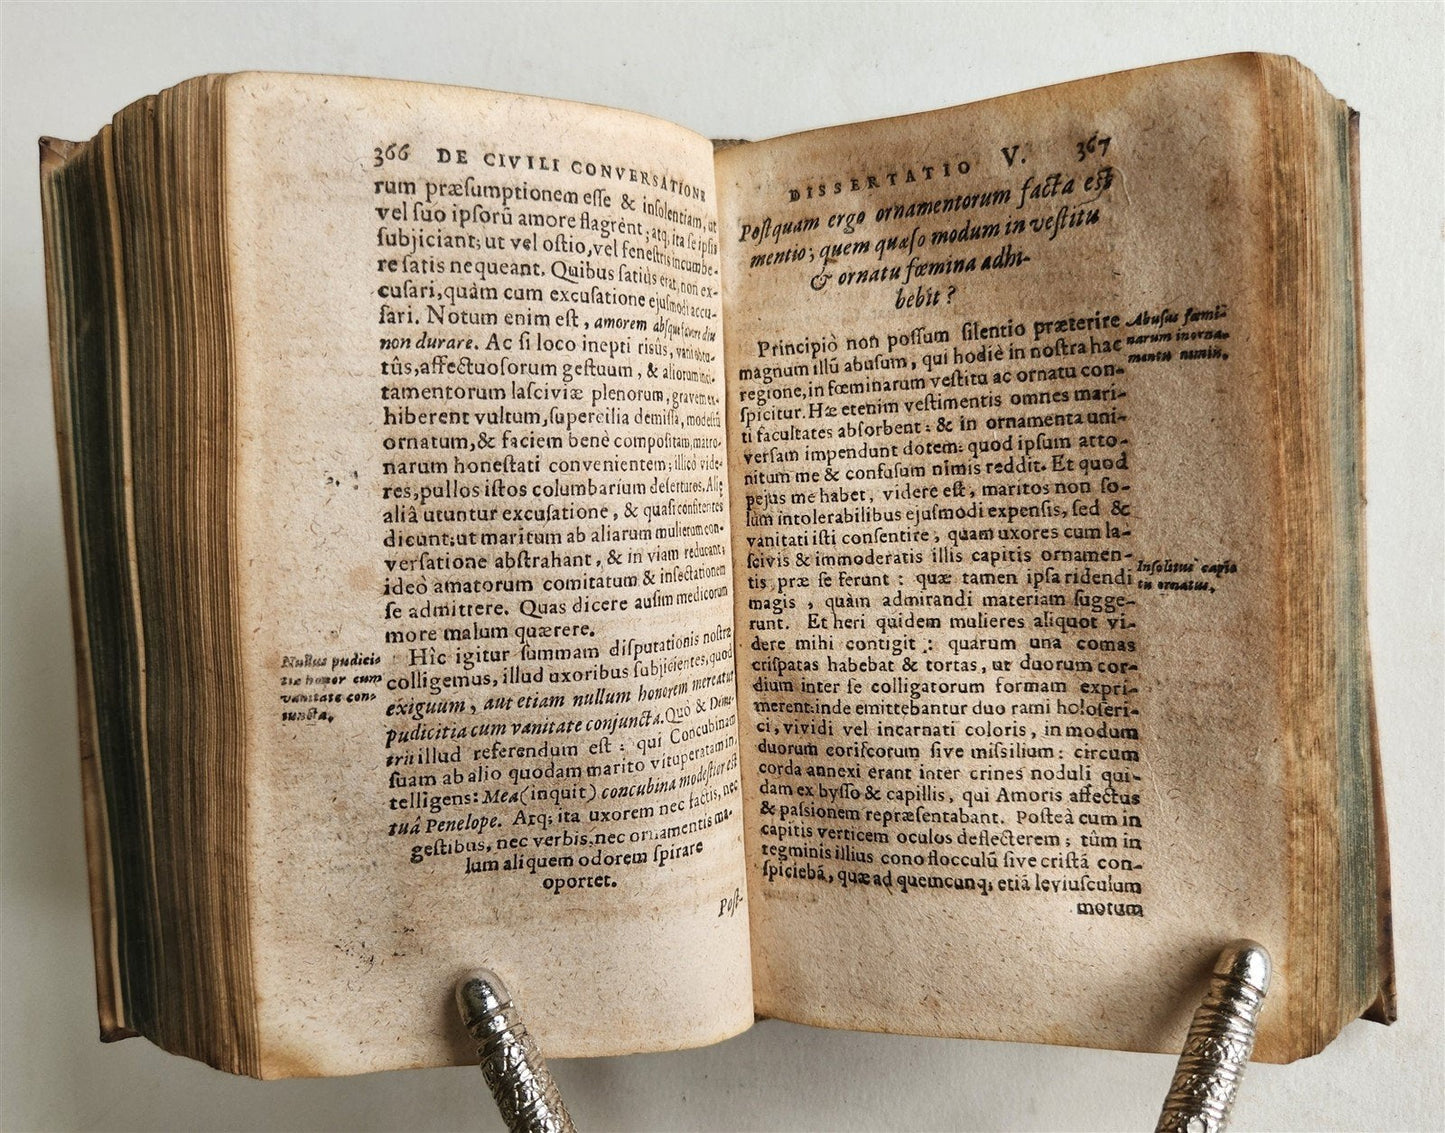 366 DE CIVILI CONVERSATIONE
rum præſumptionem eſſe & inſolentiam, ut
vel ſuo ipſorũ amore flagrẽt; atq; ita ſe ipſis
ſubjiciant; ut vel oſtio, vel feneſtris incumbe-
re ſatis nequeant. Quibus ſatiùs erat, non ex-
cuſari, quàm cum excuſatione ejuſmodi accu-
ſari. Notum enim eſt, amorem absque favore diu
non durare. Ac ſi loco inepti risûs, vani obtu-
tûs, affectuoſorum geſtuum, & aliorum inci-
tamentorum laſciviæ plenorum, gravem ex-
hiberent vultum, ſupercilia demiſſa, modeſtũ
ornatum, & faciem benè compoſitam, matro-
narum honeſtati convenientem; illicò vide-
res, pullos iſtos columbarium deſerturos. Alię
aliâ utuntur excuſatione, & quaſi confitentes
dicunt; ut maritum ab aliarum mulierum con-
verſatione abſtrahant, & in viam reducant;
ideò amatorum comitatum & inſectationem
ſe admittere. Quas dicere auſim medicorum
more malum quærere.
Nullus pudici-
tiæ honor cum
vanitate con-
iuncta.
Hîc igitur ſummam diſputationis noſtræ
colligemus, illud uxoribus ſubjicientes, quod
exiguum, aut etiam nullum honorem mereatur
pudicitia cum vanitate conjuncta. Quò & Deme-
trii illud referendum eſt: qui Concubinam
ſuam ab alio quodam marito vituperatam in-
telligens: Mea (inquit) concubina modeſtior eſt
tuâ Penelope. Atq; ita uxorem nec factis, nec
geſtibus, nec verbis, nec ornamentis ma-
lum aliquem odorem ſpirare
oportet.
Poſt-
DISSERTATIO V. 367
Poſtquam ergo ornamentorum facta eſt
mentio; quem quæſo modum in veſtitu
& ornatu fœmina adhi-
bebit?
Principiò non poſſum ſilentio præterire
magnum illũ abuſum, qui hodiè in noſtra hac
regione, in fœminarum veſtitu ac ornatu con-
ſpicitur. Hæ etenim veſtimentis omnes mari-
ti facultates abſorbent: & in ornamenta uni-
verſam impendunt dotem: quod ipſum atto-
nitum me & confuſum nimis reddit. Et quod
pejus me habet, videre eſt, maritos non ſo-
lùm intolerabilibus ejuſmodi expenſis, ſed &
vanitati iſti conſentire, quam uxores cum la-
ſcivis & immoderatis illis capitis ornamen-
tis præ ſe ferunt: quæ tamen ipſa ridendi
magis, quàm admirandi materiam ſugge-
runt. Et heri quidem mulieres aliquot vi-
dere mihi contigit: quarum una comas
criſpatas habebat & tortas, ut duorum cor-
dium inter ſe colligatorum formam expri-
merent: inde emittebantur duo rami holoſeri-
ci, vividi vel incarnati coloris, in modum
duorum coriſcorum ſive miſſilium: circum
corda annexi erant inter crines noduli qui-
dam ex byſſo & capillis, qui Amoris affectus
& paſsionem repræſentabant. Poſteà cum in
capitis verticem oculos deflecterem; tùm in
tegminis illius cono flocculũ ſive criſtã con-
ſpiciebã, quæ ad quemcunq; etiã leviuſculum
motum
Abuſus fœmi-
narum in orna-
mentis nimiu.
Inſolitus capi-
tis ornatus.